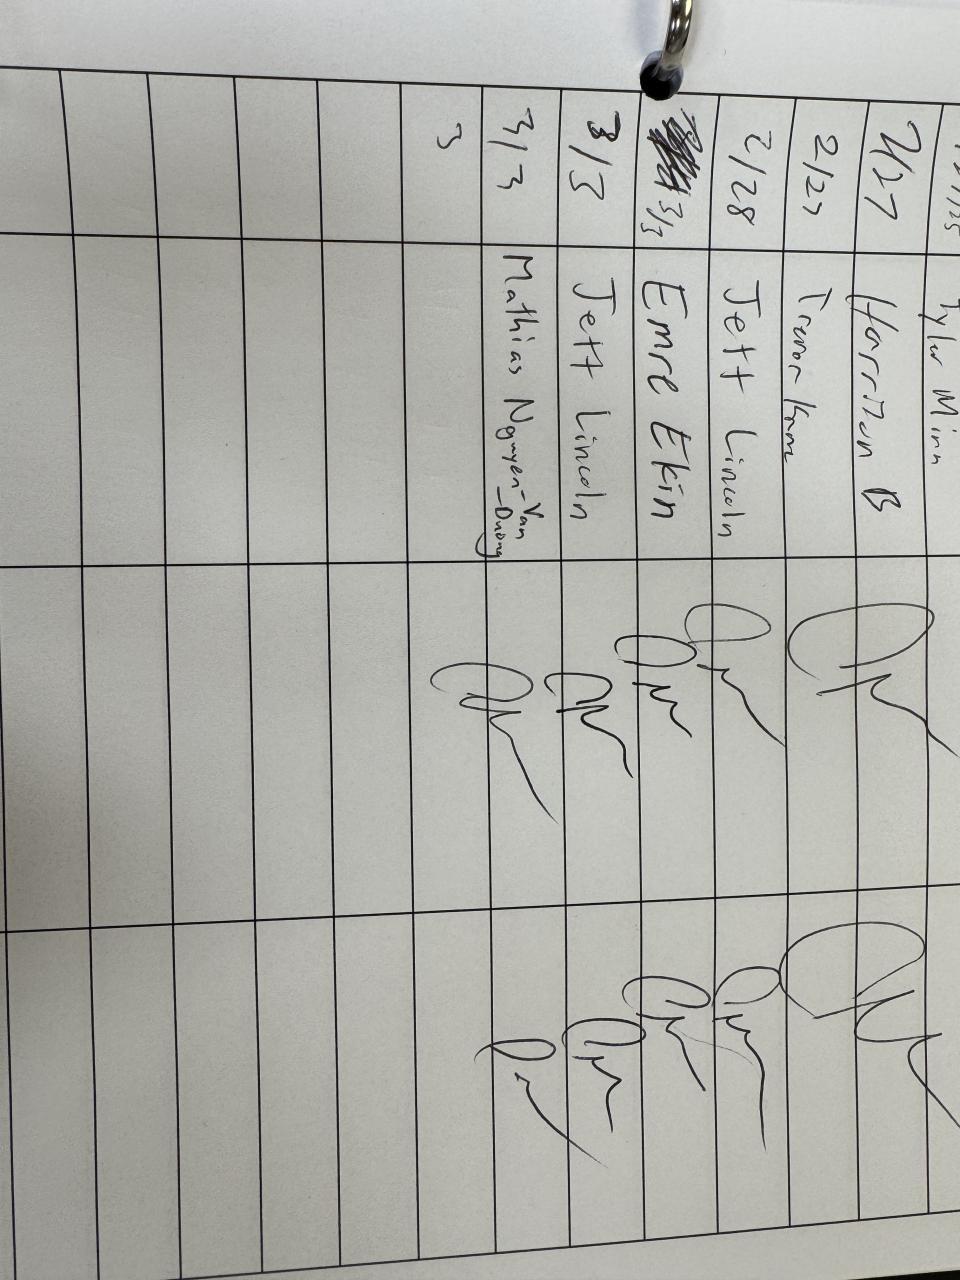 Tyler Minn
2/27 Harrison B
2/27 Trevor
2/28 Jett Lincoln
3/3 Emre Ekin
3/3 Jett Lincoln
3/3 Mathias Nguyen-Van
-Duong
3